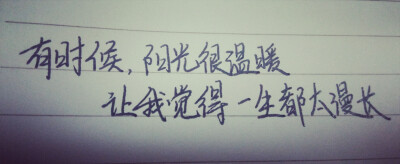 有时候，阳光很温暖
让我觉得一生都太漫长